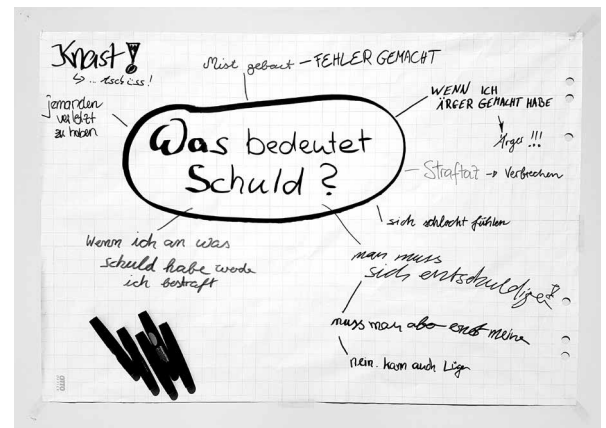 Knast!
↳ ... tschüss!
Mist gebaut – FEHLER GEMACHT
jemanden
verletzt
zu haben
WENN ICH
ÄRGER GEMACHT HABE
Ärger !!!
Was bedeutet
Schuld?
Straftat → Verbrechen
sich schlecht fühlen
Wenn ich an was
schuld habe werde
ich bestraft
man muss
sich entschuldigen!
muss man aber ernst meinen
nein. kann auch Lügen